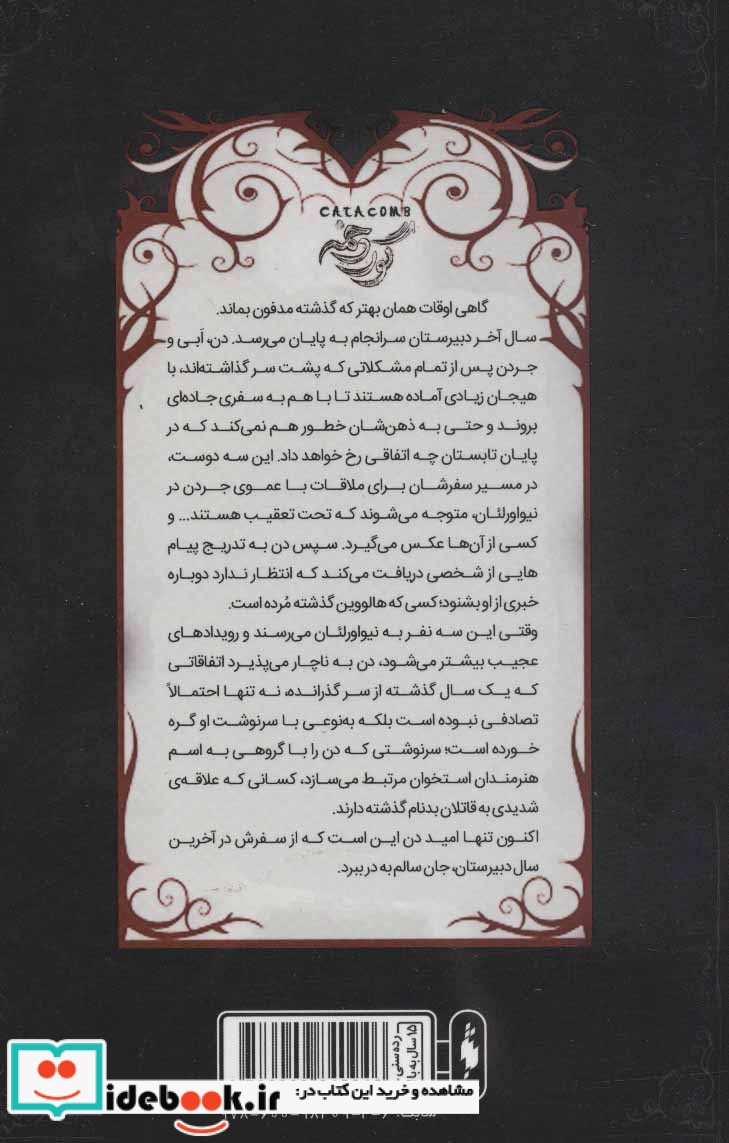 CATACOMB
گوردخمه
گاهی اوقات همان بهتر که گذشته مدفون بماند.
سال آخر دبیرستان سرانجام به پایان می‌رسد. دن، اَبی و
جردن پس از تمام مشکلاتی که پشت سر گذاشته‌اند، با
هیجان زیادی آماده هستند تا با هم به سفری جاده‌ای
بروند و حتی به ذهن‌شان خطور هم نمی‌کند که در
پایان تابستان چه اتفاقی رخ خواهد داد. این سه دوست،
در مسیر سفرشان برای ملاقات با عموی جردن در
نیواورلئان، متوجه می‌شوند که تحت تعقیب هستند... و
کسی از آن‌ها عکس می‌گیرد. سپس دن به تدریج پیام
هایی از شخصی دریافت می‌کند که انتظار ندارد دوباره
خبری از او بشنود؛ کسی که هالووین گذشته مُرده است.
وقتی این سه نفر به نیواورلئان می‌رسند و رویدادهای
عجیب بیشتر می‌شود، دن به ناچار می‌پذیرد اتفاقاتی
که یک سال گذشته از سر گذرانده، نه تنها احتمالاً
تصادفی نبوده است بلکه به‌نوعی با سرنوشت او گره
خورده است؛ سرنوشتی که دن را با گروهی به اسم
هنرمندان استخوان مرتبط می‌سازد، کسانی که علاقه‌ی
شدیدی به قاتلان بدنام گذشته دارند.
اکنون تنها امید دن این است که از سفرش در آخرین
سال دبیرستان، جان سالم به در ببرد.
رده سنی
۱۵ سال به با
مشاهده و خرید این کتاب در:
idebook.ir